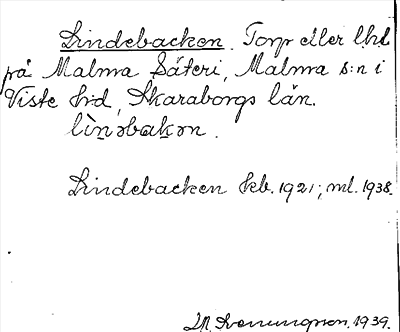 Lindebacken. Torp eller lht
på Malma Säteri, Malma s:n i
Viste hd, Skaraborgs län.
lìnəbakən.
Lindebacken kb. 1921; ml. 1938.
1939.